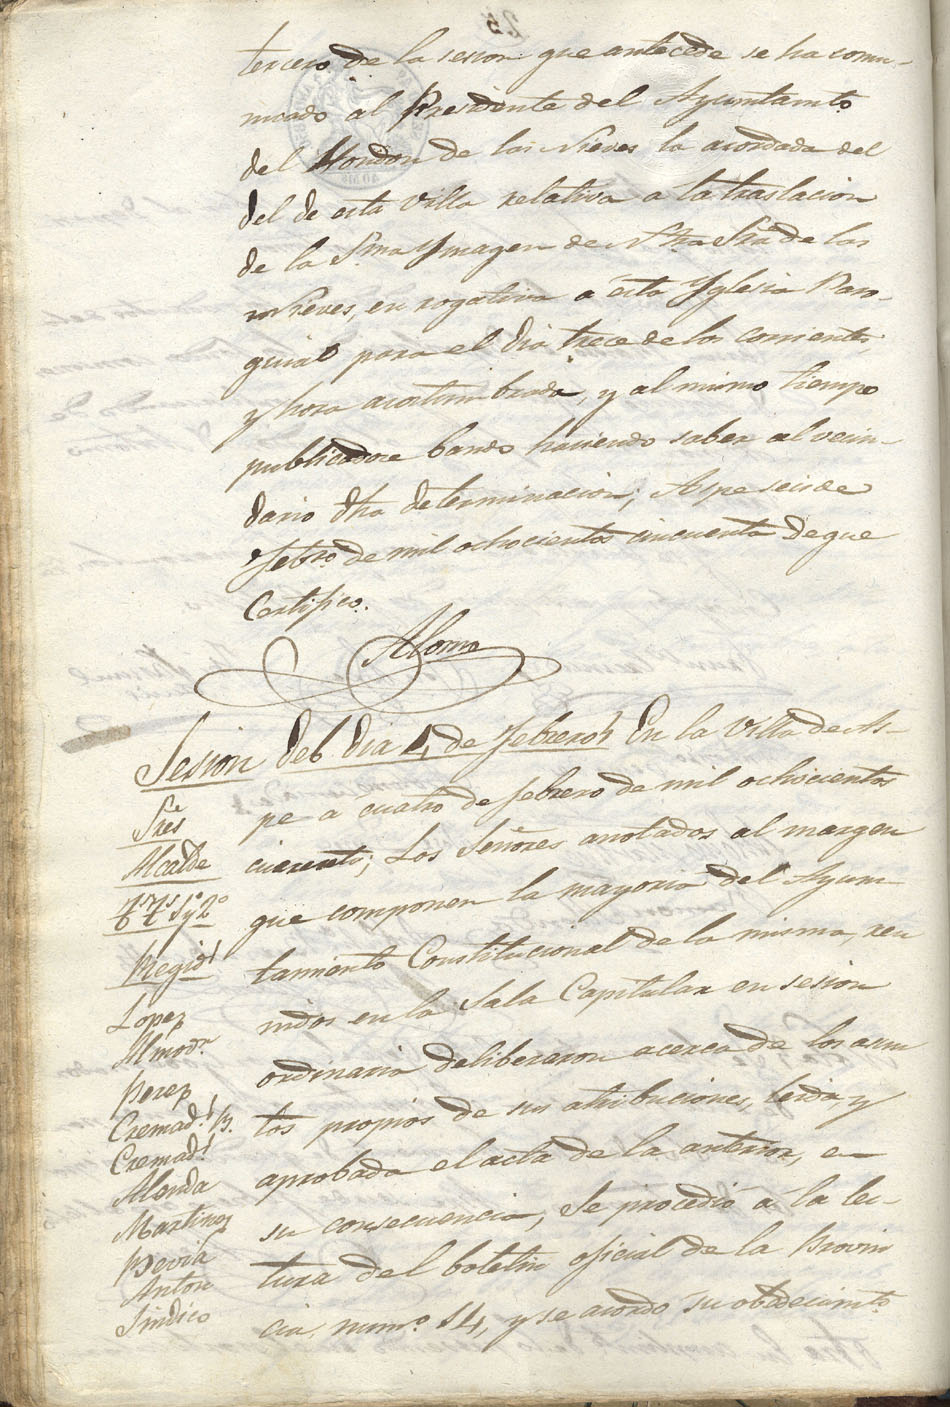 tercero de la sesion que antecede se ha comu-
nicado al Presidente del Ayuntamto
del Hondon de las Nieves lo acordado del
del de esta Villa relativa a la traslacion
de la Sma Ymagen de Ntra Sra de las
Nieves, en rogativa a esta Yglesia Parro-
quial para el dia trece de los corrientes,
y hora acostumbrada, y al mismo tiempo
publicadose bando haciendo saber al vecin-
dario dha determinacion, Aspe seis de
Febro de mil ochocientos cincuenta de que
Certifico.
Sesion del dia 4 de Febrero En la Villa de As-
pe a cuatro de febrero de mil ochocientos
cincuenta; Los Señores anotados al margen
que componen la mayoria del Ayun-
tamiento Constitucional de la misma, reu
nidos en la Sala Capitular en sesion
ordinaria deliberaron acerca de los asun
tos propios de sus atribuciones, leida, y
aprobada el acta de la anterior, en
su consecuencia, Se procedió a la lec-
tura del boletin oficial de la Provin
cia, numo. 14, y se acordo su obedecimto.
Sres
Alcalde
Ttes 1º y 2º
Regids
Lopez
Almodr.
Perez
Cremads. B.
Cremads
Alenda
Martinez
Bevia
Anton
Sindico